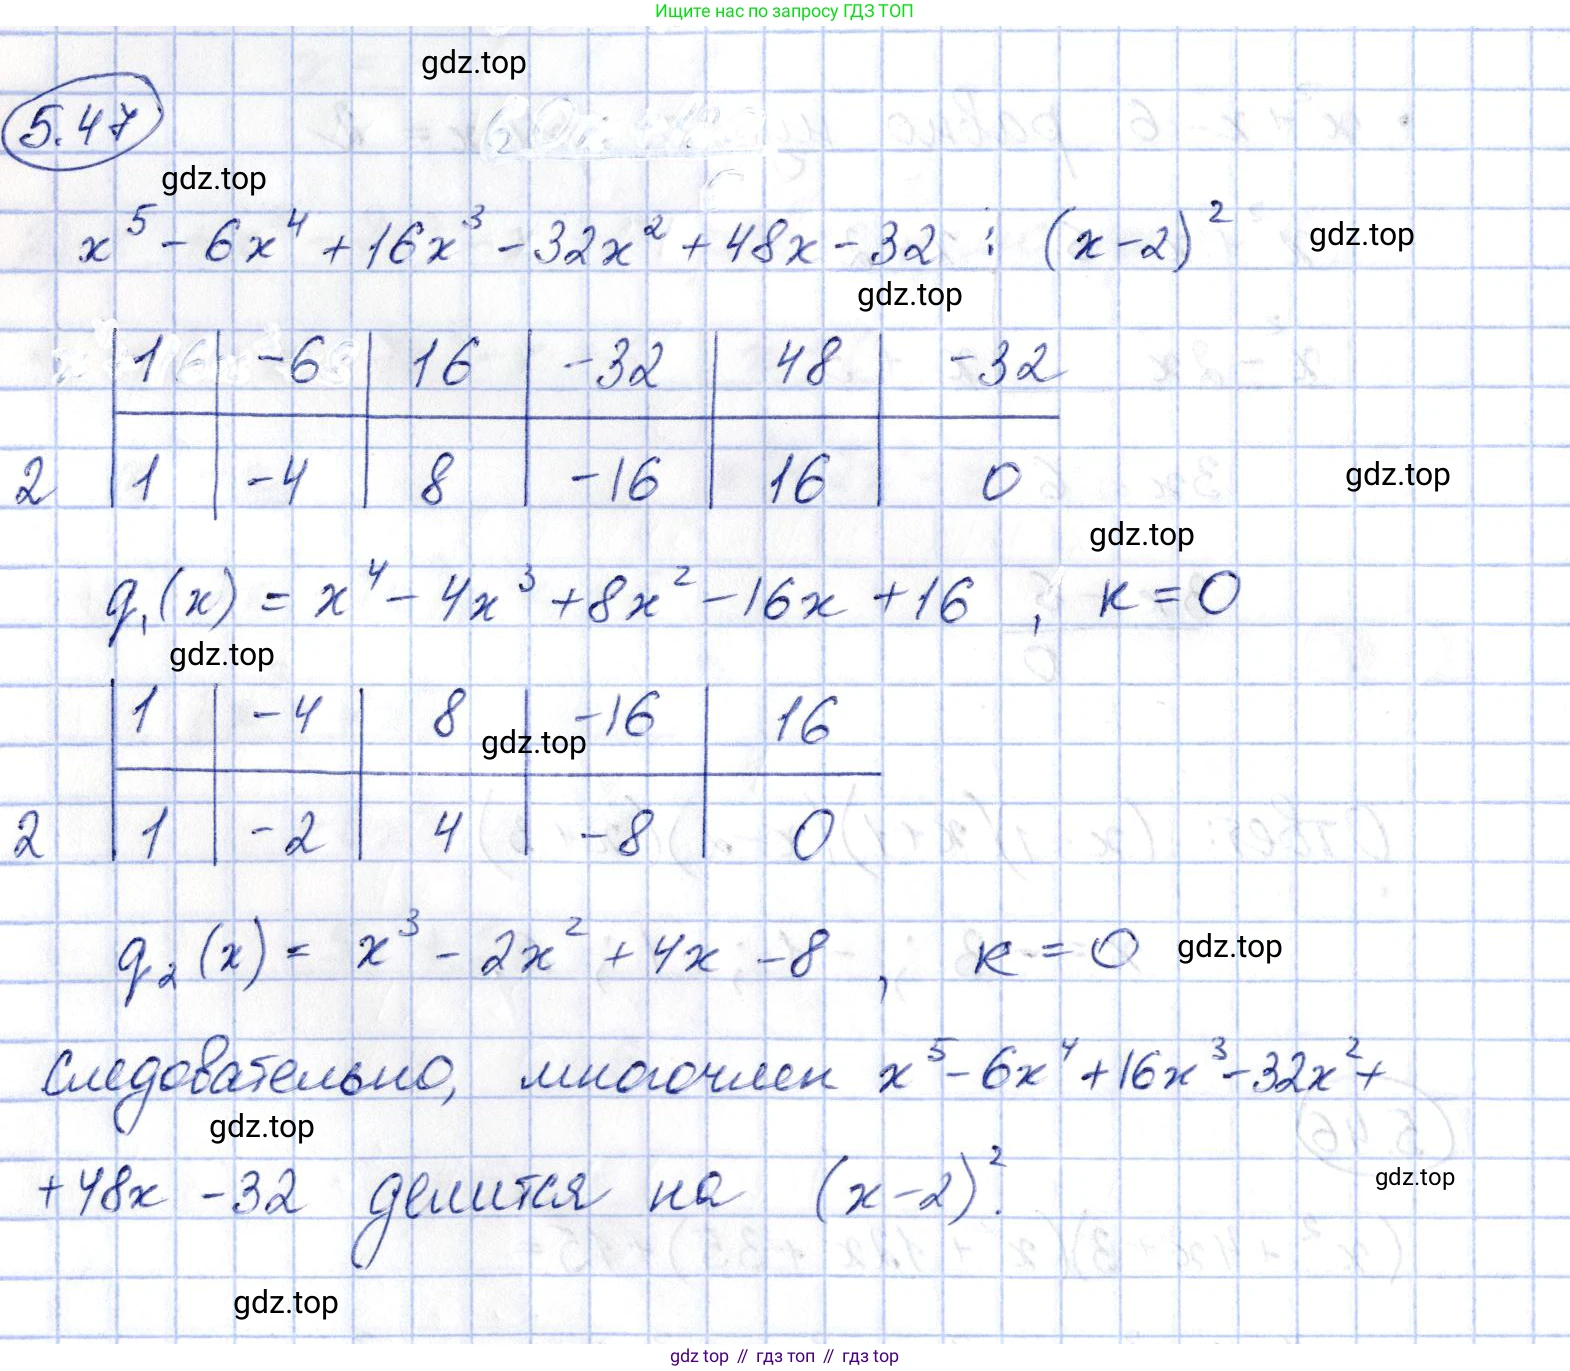 Ищите нас по запросу ГДЗ ТОП
gdz.top
5.47
gdz.top
x⁵ - 6x⁴ + 16x³ - 32x² + 48x - 32 ⋮ (x-2)²
gdz.top
gdz.top
1 | -6 | 16 | -32 | 48 | -32
2 | 1 | -4 | 8 | -16 | 16 | 0
gdz.top
gdz.top
q₁(x) = x⁴ - 4x³ + 8x² - 16x + 16 , к = 0
gdz.top
1 | -4 | 8 | -16 | 16
gdz.top
2 | 1 | -2 | 4 | -8 | 0
q₂(x) = x³ - 2x² + 4x - 8 , к = 0
gdz.top
следовательно, многочлен x⁵ - 6x⁴ + 16x³ - 32x² +
gdz.top
+ 48x - 32 делится на (x-2)².
gdz.top
gdz.top
gdz top // гдз топ // гдз top